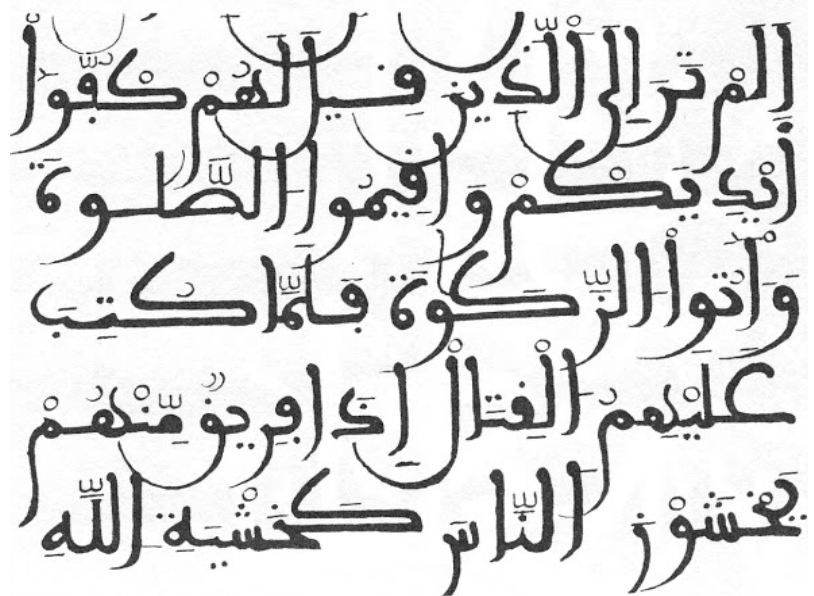 اَلَمْ تَرَ اِلَى اَلَّذِينَ قِيلَ لَهُمْ كُفُّوٓاْ
أَيْدِيَكُمْ وَأَقِيمُواْ اَلصَّلَوٰةَ
وَءَاتُواْ اَلزَّكَوٰةَ فَلَمَّا كُتِبَ
عَلَيْهِمُ اَلْقِتَالُ إِذَا فَرِيقٌ مِّنْهُمْ
يَخْشَوْنَ اَلنَّاسَ كَخَشْيَةِ اِللَّهِ